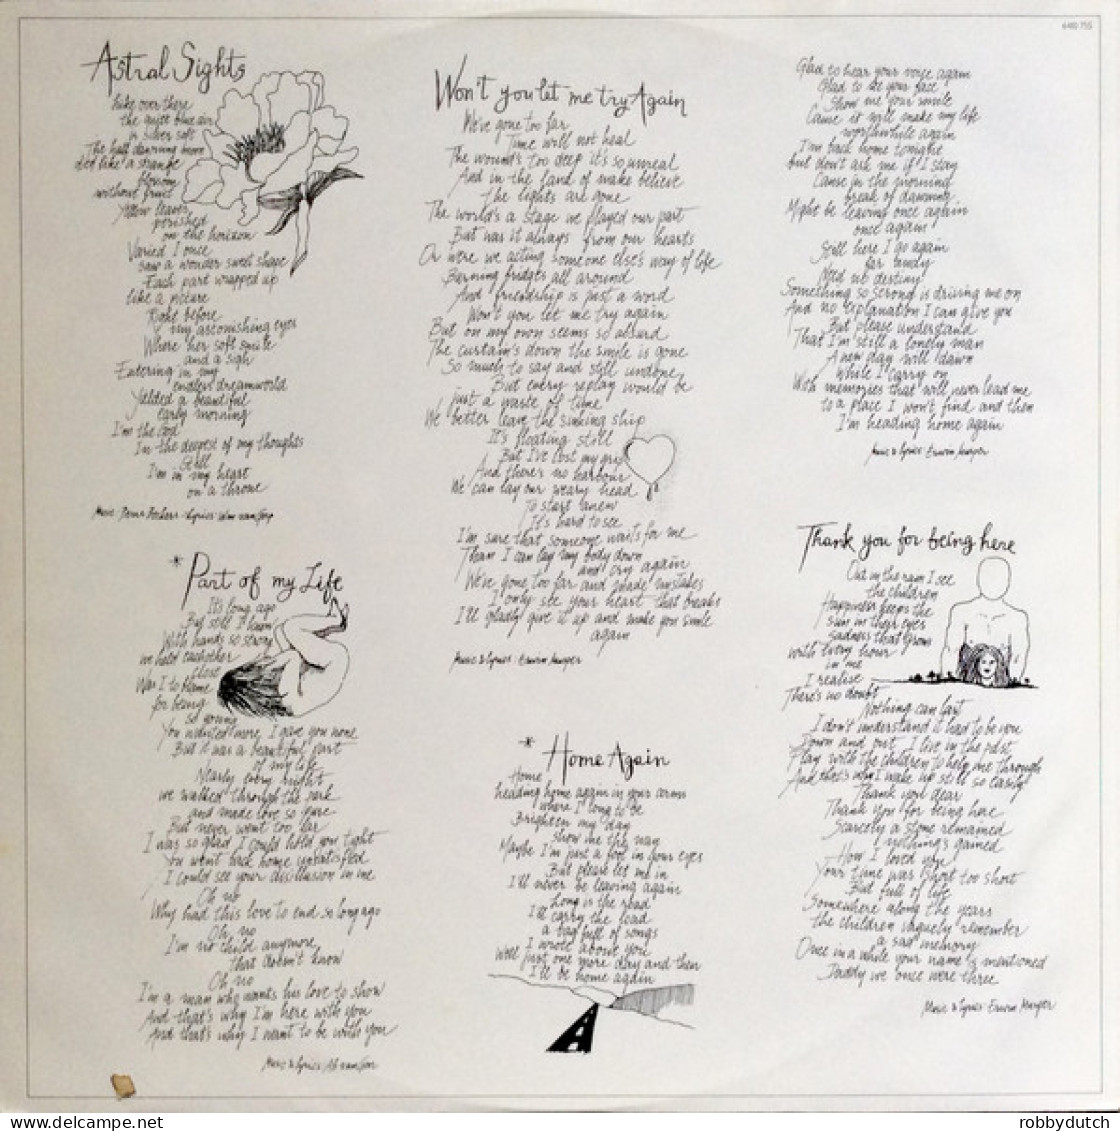 6410 755
Astral Sights
Like over there
the quite blue air
in silver soft
The half dawning move
died like a strange
blossom
without fruit
Yellow leaves
perished
on the horizon
Varied I once
saw a wonder swell shape
Each part wrapped up
like a picture
Right before
my astonishing eyes
Where her soft smile
and a sigh
Entering in my
endless dreamworld
Yielded a beautiful
early morning
I'm the God
In the deepest of my thoughts
Still
I'm in my heart
on a throne
Music: Lyrics:
* Part of my Life
It's long ago
But still I know
With hands so strong
we held eachother
close
Was I to blame
for being
so young
You wanted more, I gave you none
But it was a beautiful part
of my life
Nearly every night
we walked through the park
and made love so pure
But never went too far
I was so glad I could hold you tight
You went back home unsatisfied
I could see your disillusion in me
Oh no
Why had this love to end so long ago
Oh, no
I'm no child anymore,
that doesn't know
Oh no
I'm a man who wants his love to show
And that's why I'm here with you
And that's why I want to be with you
Music & Lyrics:
Won't you let me try Again
We've gone too far
Time will not heal
The wound's too deep it's so unreal
And in the land of make believe
the lights are gone
The world's a stage we played our part
But was it always from our hearts
Or were we acting someone else's way of life
Burning bridges all around
And friendship is just a word
Won't you let me try again
But on my own seems so absurd
The curtain's down the smile is gone
So much to say and still undone
But every replay would be
just a waste of time
We better leave the sinking ship
It's floating still
But I've lost my grip
And there's no harbour
We can lay our weary head
To start anew
It's hard to see
I'm sure that someone waits for me
Then I can lay my body down
and cry again
We've gone too far and made mistakes
I only see your heart that breaks
I'll gladly give it up and make you smile
again
Music & Lyrics: Erwin
* Home Again
Home
heading home again in your arms
where I long to be
Brighten my day
show me the way
Maybe I'm just a fool in your eyes
But please let me in
I'll never be leaving again
Long is the road
I'll carry the load
a bag full of songs
I wrote about you
Well just one more day and then
I'll be home again
Glad to hear your voice again
Glad to see your face
Show me your smile
Cause it will make my life
worthwhile again
I'm back home tonight
but don't ask me if I stay
Cause in the morning
break of dawning
Might be leaving once again
once again
Still here I go again
far away
Need no destiny
Something so strong is driving me on
And no explanation I can give you
But please understand
That I'm still a lonely man
A new day will dawn
while I carry on
With memories that will never lead me
to a place I won't find and then
I'm heading home again
Music & Lyrics: Erwin
Thank you for being here
Out in the rain I see
the children
Happiness keeps the
sun in their eyes
Sadness that grows
with every hour
in me
I realise
There's no doubt
Nothing can last
I don't understand it had to be you
Down and out I live in the past
Play with the children to help me through
And that's why I wake up still so easily
Thank you dear
Thank you for being here
Scarcely a stone remained
nothing's gained
How I loved you
Your time was short too short
But full of life
Somewhere along the years
the children vaguely remember
a sad memory
Once in a while your name is mentioned
Daddy we once were three
Music & Lyrics: Erwin
robbydutch